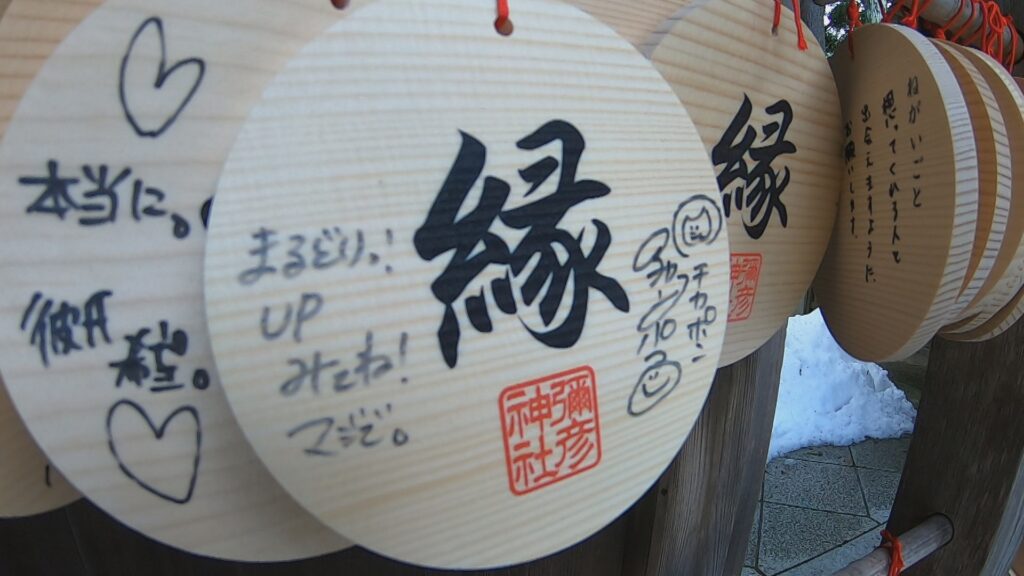 本当に。
彼氏
希望。
まるどりっ!
UP
みてね!
マジで。
縁
彌彦
神社
チカポン
縁
彌彦
ねがいごと
思ってくれる人と
出会えますように
お願いします。